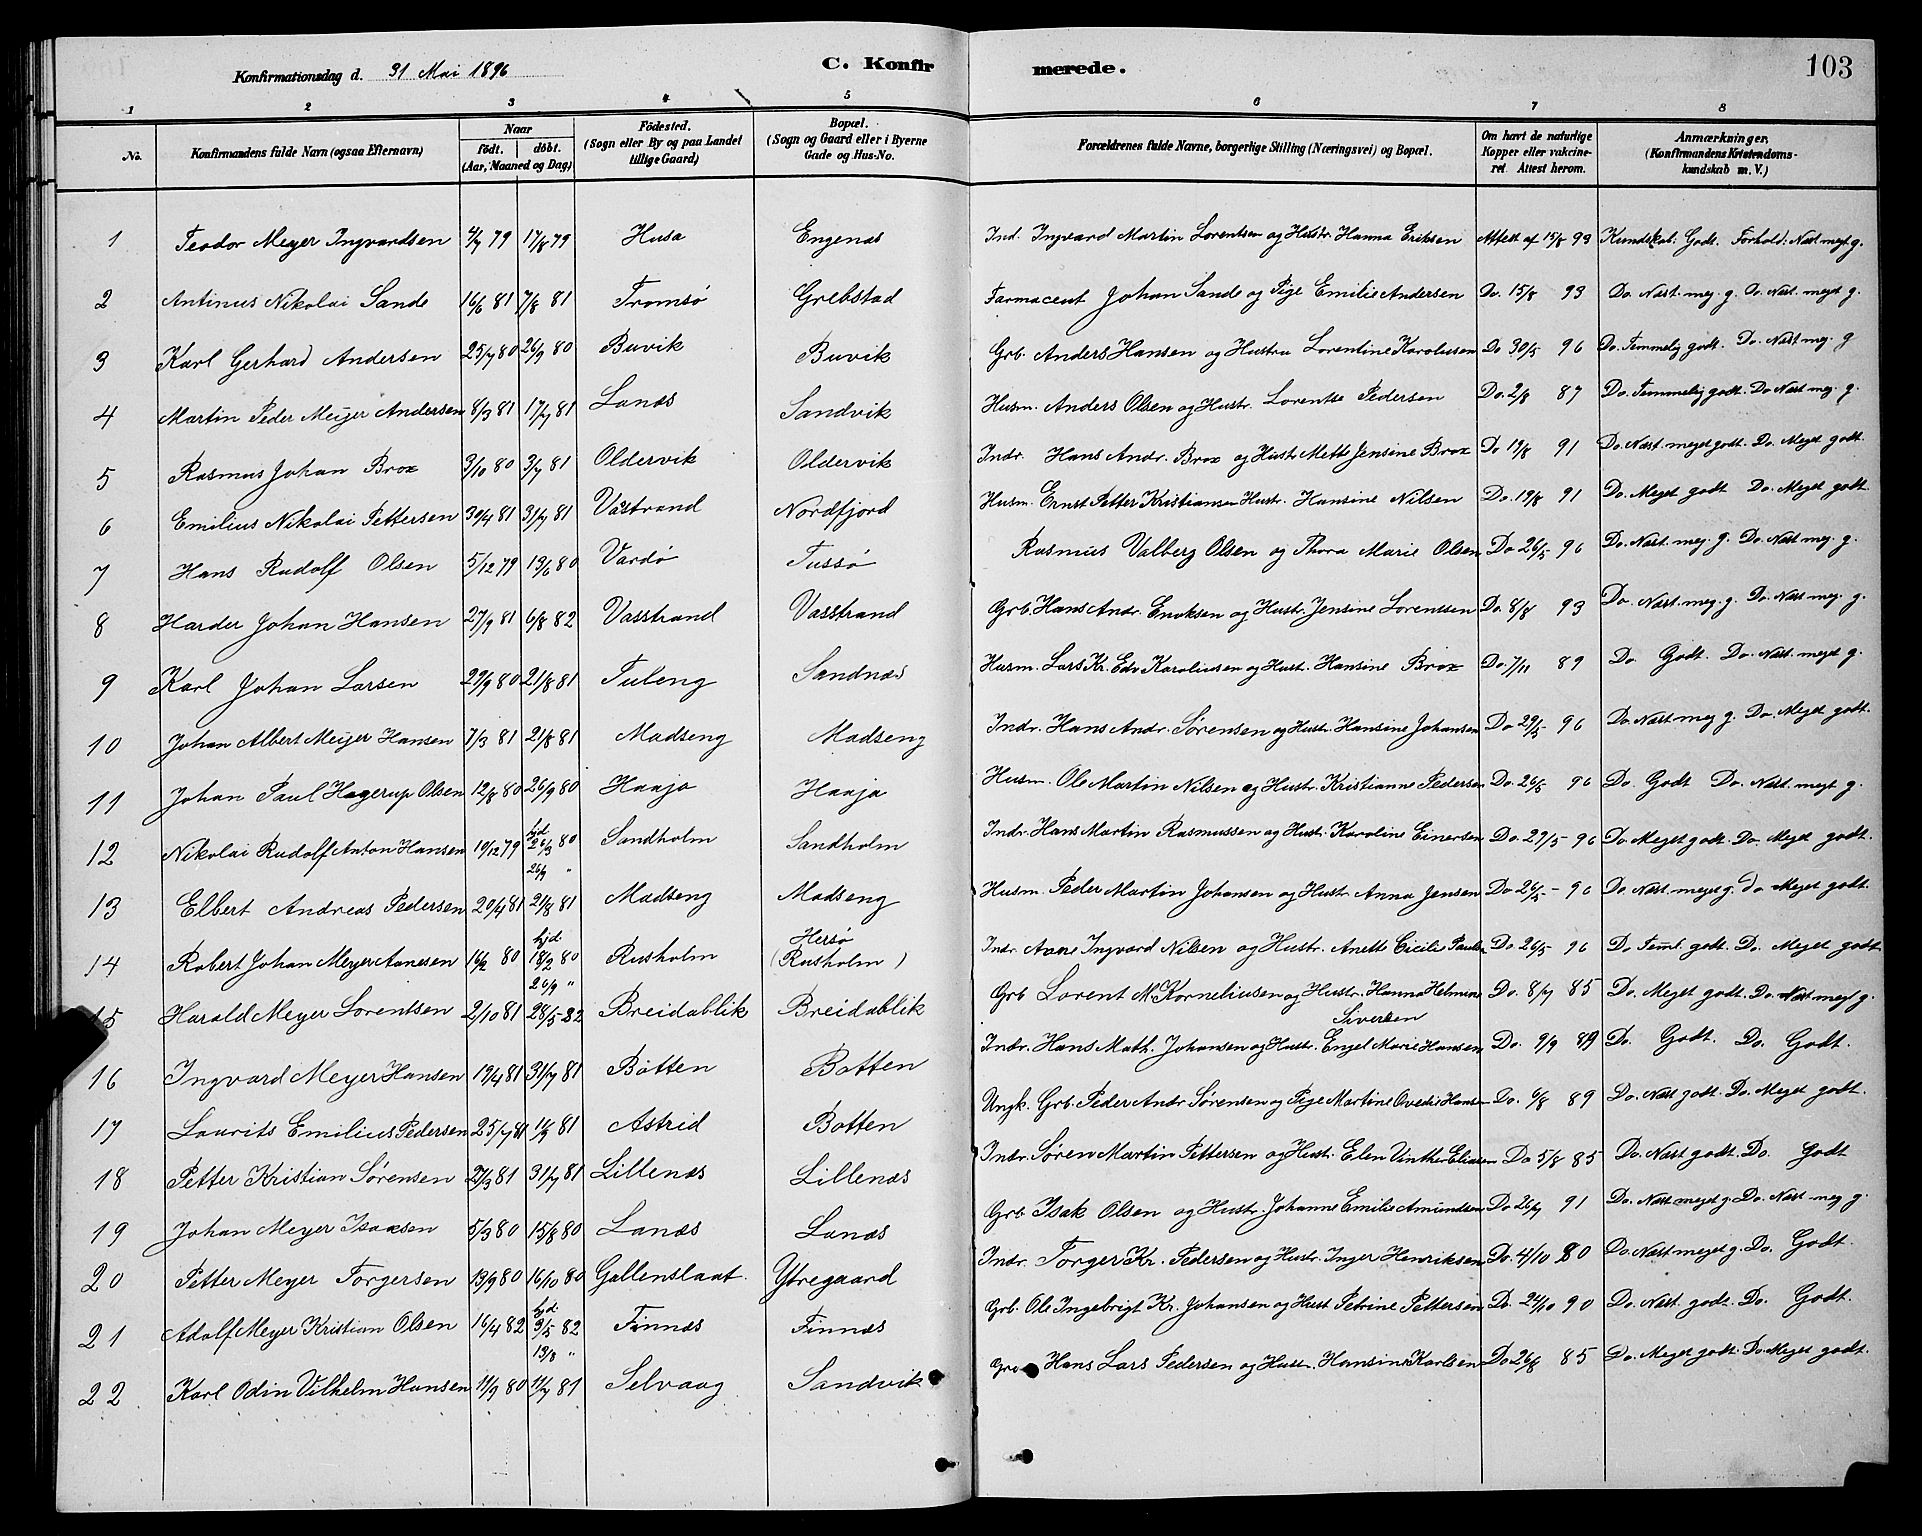 Konfirmationsdag d. 31 Mai 1896 C. Konfir merede. 103
1 2 3 4 5 6 7 8
No. Konfirmandens fulde Navn (ogsaa Efternavn) Naar födt. döbt. (Aar, Maaned og Dag) Födested. (Sogn eller By og paa Landet tillige Gaard) Bopæl. (Sogn og Gaard eller i Byerne Gade og Hus-No. Forældrenes fulde Navne, borgerlige Stilling (Næringsvei) og Bopæl. Om havt de naturlige Kopper eller vakcineret. Attest herom. Anmærkninger, (Konfirmandens Kristendomskundskab m. V.)
1 Teodor Meyer Ingvardsen 4/7 79 17/8 79 Husa Engenæs Ind. Ingvard Martin Lorentsen og Hustr. Hanna Eriksen Attest af 15/8 93 Kundskab: Godt. Forhold: Næst meget g.
2 Antinus Nikolai Sande 16/6 81 7/8 81 Tromsø Grebstad Farmaceut Johan Sande og Pige Emilie Andersen Do. 15/8 93 Do. Næst. meg. g. Do. Næst. meget g.
3 Karl Gerhard Andersen 25/7 80 26/9 80 Buvik Buvik Grb. Anders Hansen og Hustru Lorentine Karolusen Do 30/5 96 Do. Temmelig godt. Do. Næst meg. g
4 Martin Peder Meyer Andersen 8/3 81 17/7 81 Lanæs Sandvik Husm. Anders Olsen og Hustr. Lorentse Pedersen Do. 2/8 87 Do. Temmelig godt. Do Næst meg. g.
5 Rasmus Johan Brox 3/10 80 3/7 81 Oldervik Oldervik Indr. Hans Andr. Brox og Hustr Mette Jensine Brox Do 19/8 91 Do. Næst. meget godt. Do. Meget godt.
6 Emilius Nikolai Pettersen 30/4 81 31/7 81 Vasstrand Nordfjord Husm. Ernst Petter Kristiansen Hustr. Hansine Nilsen Do. 19/8 91 Do. Meget godt Do. Meget godt.
7 Hans Rudolf Olsen 5/12 79 13/6 80 Vardø Tussø Rasmus Valberg Olsen og Thora Marie Olsen Do 26/5 96 Do. Næst. meg. g. Do. Næst meg. g.
8 Harder Johan Hansen 27/9 81 6/8 82 Vasstrand Vasstrand Grb. Hans Andr. Enoksen og Hustr. Jensine Lorentsen Do. 8/8 93 Do. Næst. meg. g. Do. Næst meg. g.
9 Karl Johan Larsen 29/9 80 21/8 81 Tuleng Sandnæs Husm. Lars Kr. Edv Karoliusen og Hust. Hansine Brox Do. 7/11 89 Do. Godt. Do. Næst. meget g.
10 Johan Albert Meyer Hansen 7/3 81 21/8 81 Madseng Madseng Indr. Hans Andr. Sørensen og Hustr. Hansine Johansen Do 29/5 96 Do. Næst meg g. Do. Meget godt.
11 Johan Paul Hagerup Olsen 12/8 80 26/9 80 Haaja Haaja Husm. Ole Martin Nilsen og Hustr. Kristianne Pedersen Do. 26/5 96 Do. Godt Do. Næst. meget g.
12 Nikolai Rudolf Anton Hansen 10/12 79 hjd 26/3 80 26/9 " Sandholm Sandholm Indr. Hans Martin Rasmussen og Hustr. Karoline Einersen Do. 27/5 96 Do. Meget godt. Do. Meget godt.
13 Elbert Andreas Pedersen 20/4 81 21/8 81 Madseng Madseng Husm. Peder Martin Johansen og Hustr Anna Jensen Do 26/5 - 96 Do Næst. meget g. do Meget godt.
14 Robert Johan Meyer Aanesen 16/2 80 hjd 18/2 80 26/9 " Rusholm Hersø (Rusholm) Indr. Aane Ingvard Nilsen og Hustr. Anette Cicilie Pauls Do. 26/5 96 Do Teml. godt. Do. Meget godt
15 Harald Meyer Lorentsen 2/10 81 28/5 82 Breidablik Breidablik Grb Lorent M. Korneliusen og Hustr. Hanna Helmine Sivertsen Do. 8/7 85 Do. Meget godt. Do. Næst meget g.
16 Ingvard Meyer Hansen 19/4 81 31/7 81 Botten Botten Indr. Hans Math. Johansen og Hustr. Engel Marie Hansen Do. 9/9 89 Do. Godt. Do. Godt.
17 Laurits Emilius Pedersen 25/7 81 11/9 81 Astrid Botten Ungk. Grb. Peder Andr Sørensen og Pige Martine Ovedie Hansen Do. 6/8 89 Do. Næst godt. Do. Meget godt.
18 Petter Kristian Sørensen 27/3 81 31/7 81 Lillenæs Lillenæs Indr. Søren Martin Pettersen og Hustr. Elen Vinther Eliasen Do 5/8 85 Do. Næst godt. Do. Godt
19 Johan Meyer Isaksen 5/3 80 15/8 80 Lanæs Lanæs Grb Isak Olsen og Hustr. Johanne Emilie Amundsen Do 26/7 91 Do. Næst meget g. Do. Næst meg g.
20 Petter Meyer Torgersen 13/9 80 16/10 80 Gallenslaat Ytregaard Indr. Torger Kr. Pedersen og Hustr. Inger Henriksen Do. 4/10 80 Do. Næst meget g. Do. Godt.
21 Adolf Meyer Kristian Olsen 16/4 82 hjd 3/5 82 13/8 " Finnæs Finnæs Grb. Ole Ingebrigt Kr. Johansen og Hust Petrine Pettersen Do. 24/10 90 Do. Næst. godt. Do. Godt.
22 Karl Odin Vilhelm Hansen 11/9 80 17/7 81 Selvaag Sandvik Hans Lars Pedersen og Hustr. Hansine Karlsen Do 26/8 85 Do. Meget godt. Do. Meget godt.